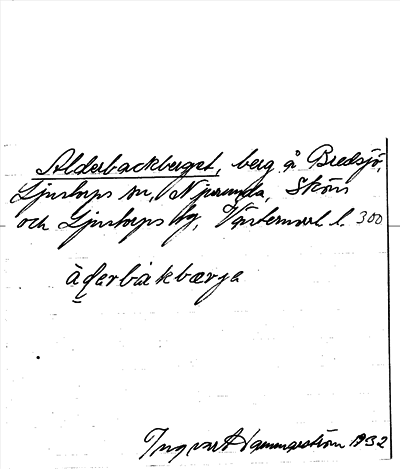 Alderbackberget, berg å Bredsjö,
Ljustorps sn, Njurunda, Sköns
och Ljustorps tg, Västernorrl. l. 300
àḍerbàkbærjə
Ingvar Hammarström 1932